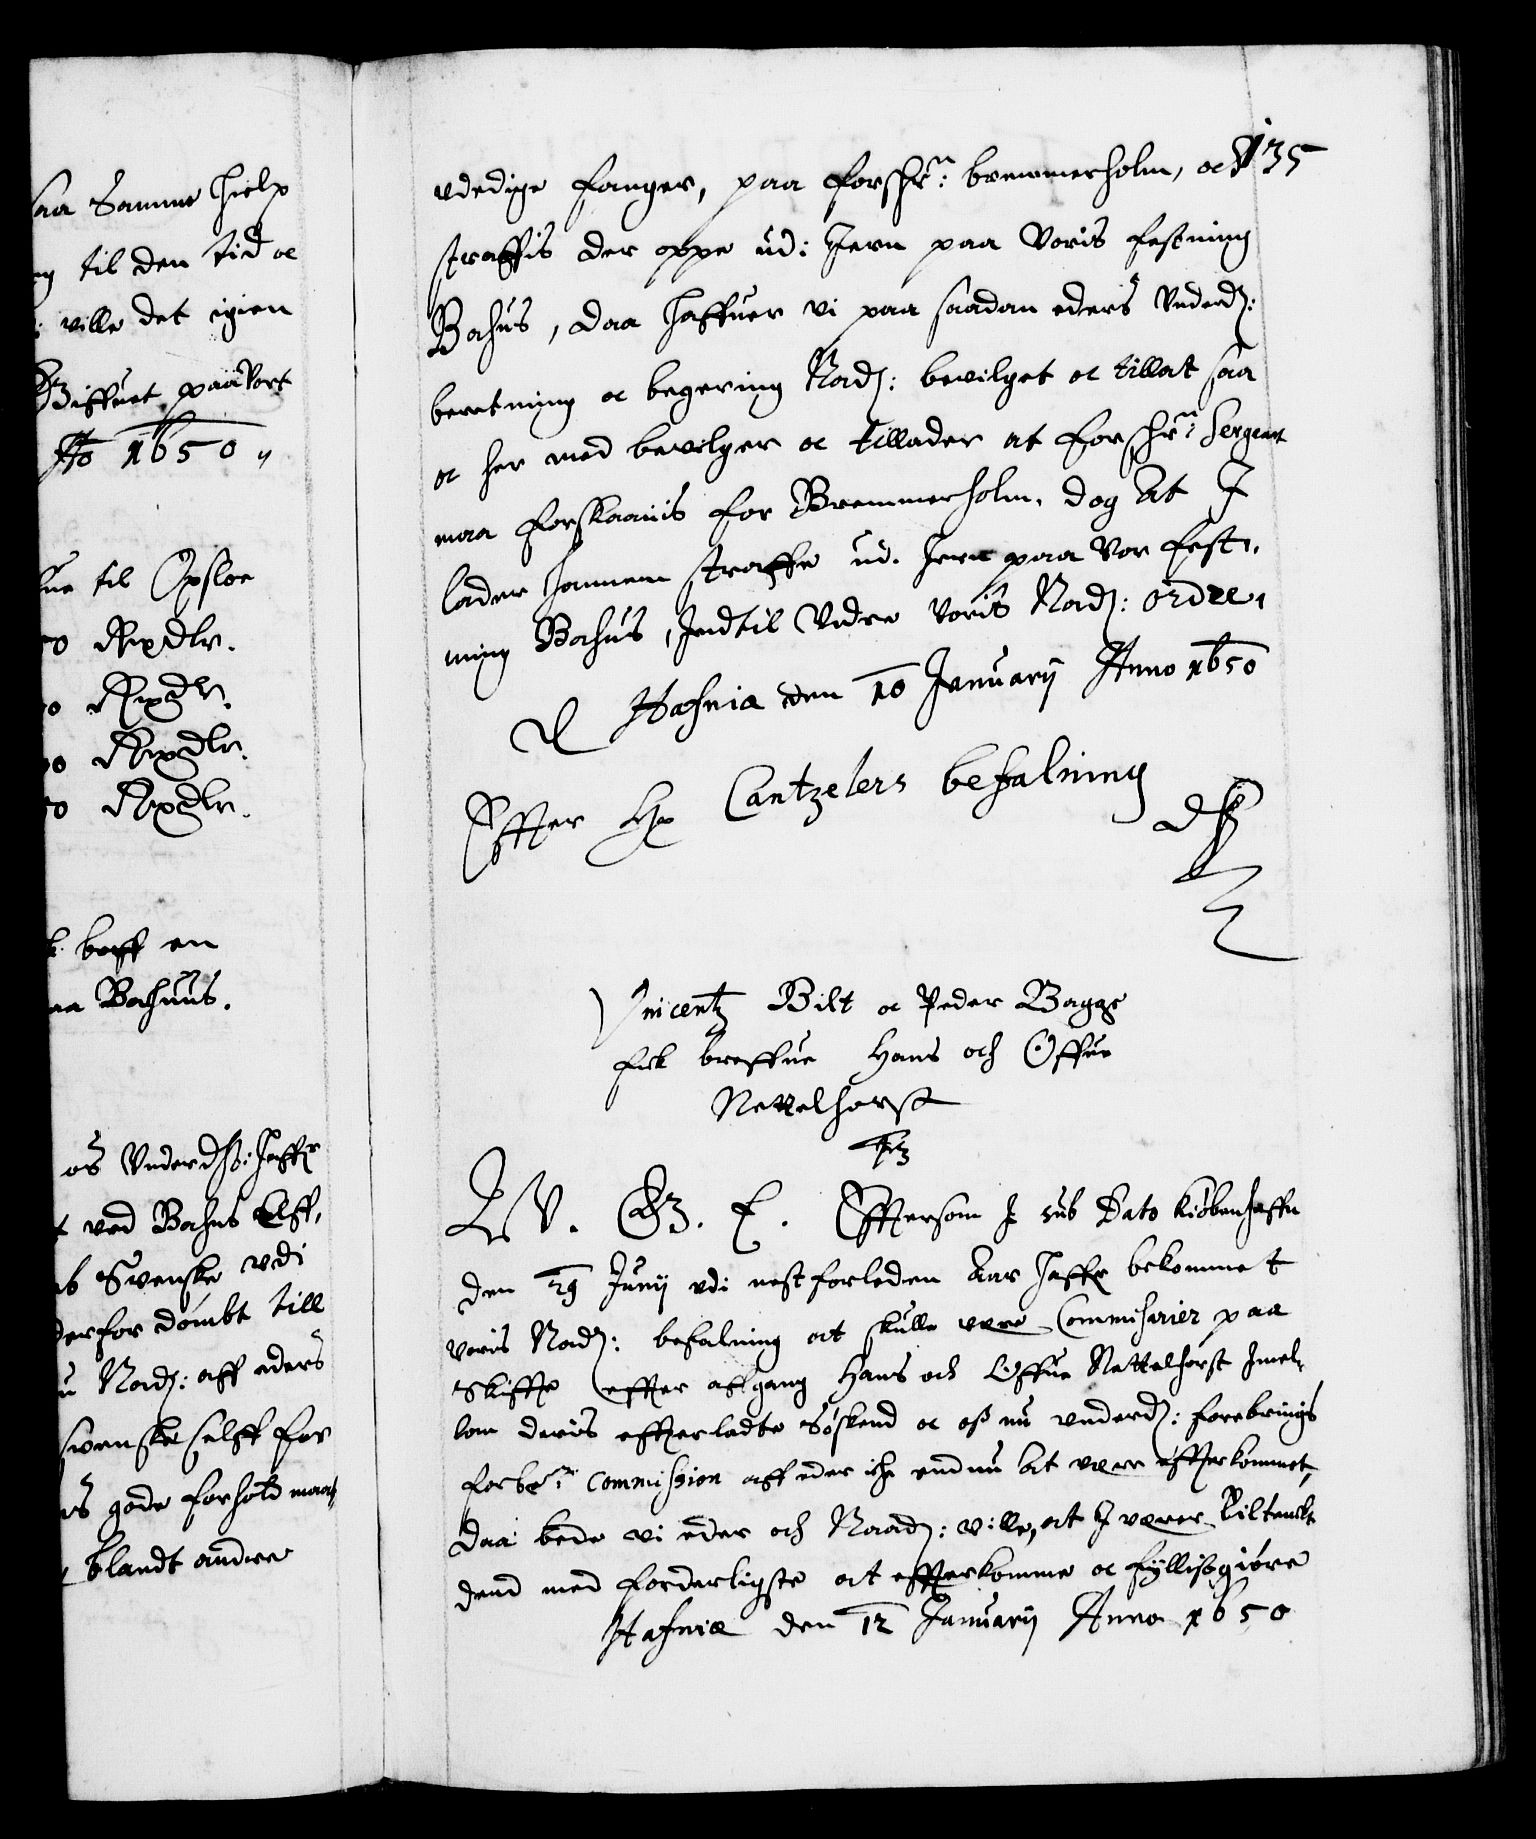 saa Samme Hielp
ng til den tid oc
ville det igien
Giffuet paa Vort
Ao 1650
til Opsloe
Rixdlr.
Rixdlr.
Rixdlr.
Rixdlr.
breff en
aa Bahuus.
os Underdß: haffr
t ved Bahus Elff,
Svenske udi
derfor dømbt till
Nadʒ: aff eders
svenske selff for
gode forhold maa
blandt andre
135
udedige fanger, paa forschrne: bremmerholm, oc
straffis der oppe ud: Jern paa Voris festning
Bahus, daa haffuer vi paa saadan eders Underdʒ:
beretning oc begering Nadʒ: bevilget oc tillat saa
oc her med bevilger oc tillader at forschrne: Sergeant
maa forskaanis for Bremmerholm, dog At I
lader hannem straffe ud. Jern paa Vor fest-
ning Bahus, Indtil Vidre Voris Nadʒ: ordre,
Hafniæ den 10 Januarij Anno 1650
Effter Hr Cantzelers befalning
Vincentz Bilt oc Peder Bagge
fik breffue Hans och Offue
Nettelhorst
W. G. T. Efftersom I sub Dato Kiøbenhaffn
den 29 Junij udi nest forleden Aar haffr bekommet
voris Nadʒ: befalning at skulle være Commissarier paa
Skiffte effter affgang Hans och Offue Nettelhorst Imel-
lom deris effterladte Søskend oc oß nu underdʒ: forebrings
forbete: Commission aff eder iche endnu At være effterkommet,
Daa bede vi eder och Naadʒ: ville, at I verer tiltenckt
dend med forderligste at effterkomme oc fyllistgiøre
Hafniæ den 12 Januarij Anno 1650